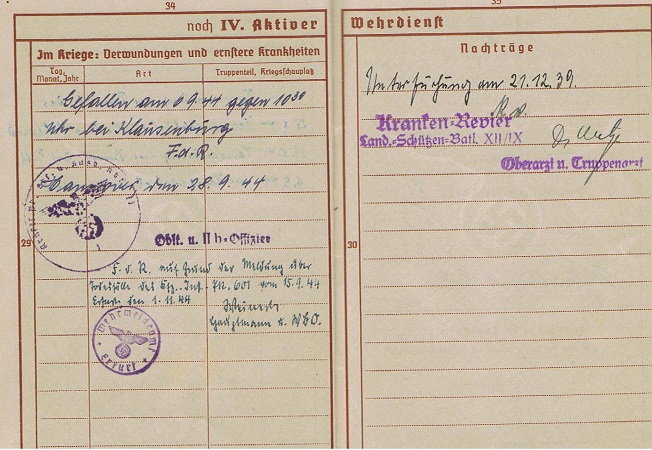 34
noch IV. Aktiver
Im Kriege: Verwundungen und ernstere Krankheiten
Tag, Monat, Jahr
Art
Truppenteil, Kriegsschauplatz
Gefallen am 6.9.44 gegen 10³⁰
Uhr bei Klausenburg
F.d.R.
den 28.9.44
29
Oblt. u. II b-Offizier
F. d. R. auf Grund der Meldung über
Todesfälle des 15.9.44
Erfurt den 1.11.44
Hauptmann u. WBO.
Wehrmeldeamt
Erfurt
35
Wehrdienst
Nachträge
Untersuchung am 21.12.39.
Kranken-Revier
Land.-Schützen-Batl. XII/IX
Oberarzt u. Truppenarzt
30